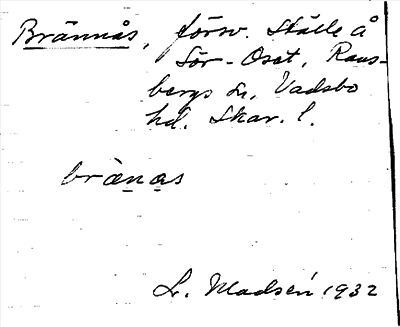 Brännås, försv. Ställe å
Sör-Oset, Rans-
bergs sn, Vadsbo
hd. Skar. l.
brànas
L. Madsén 1932